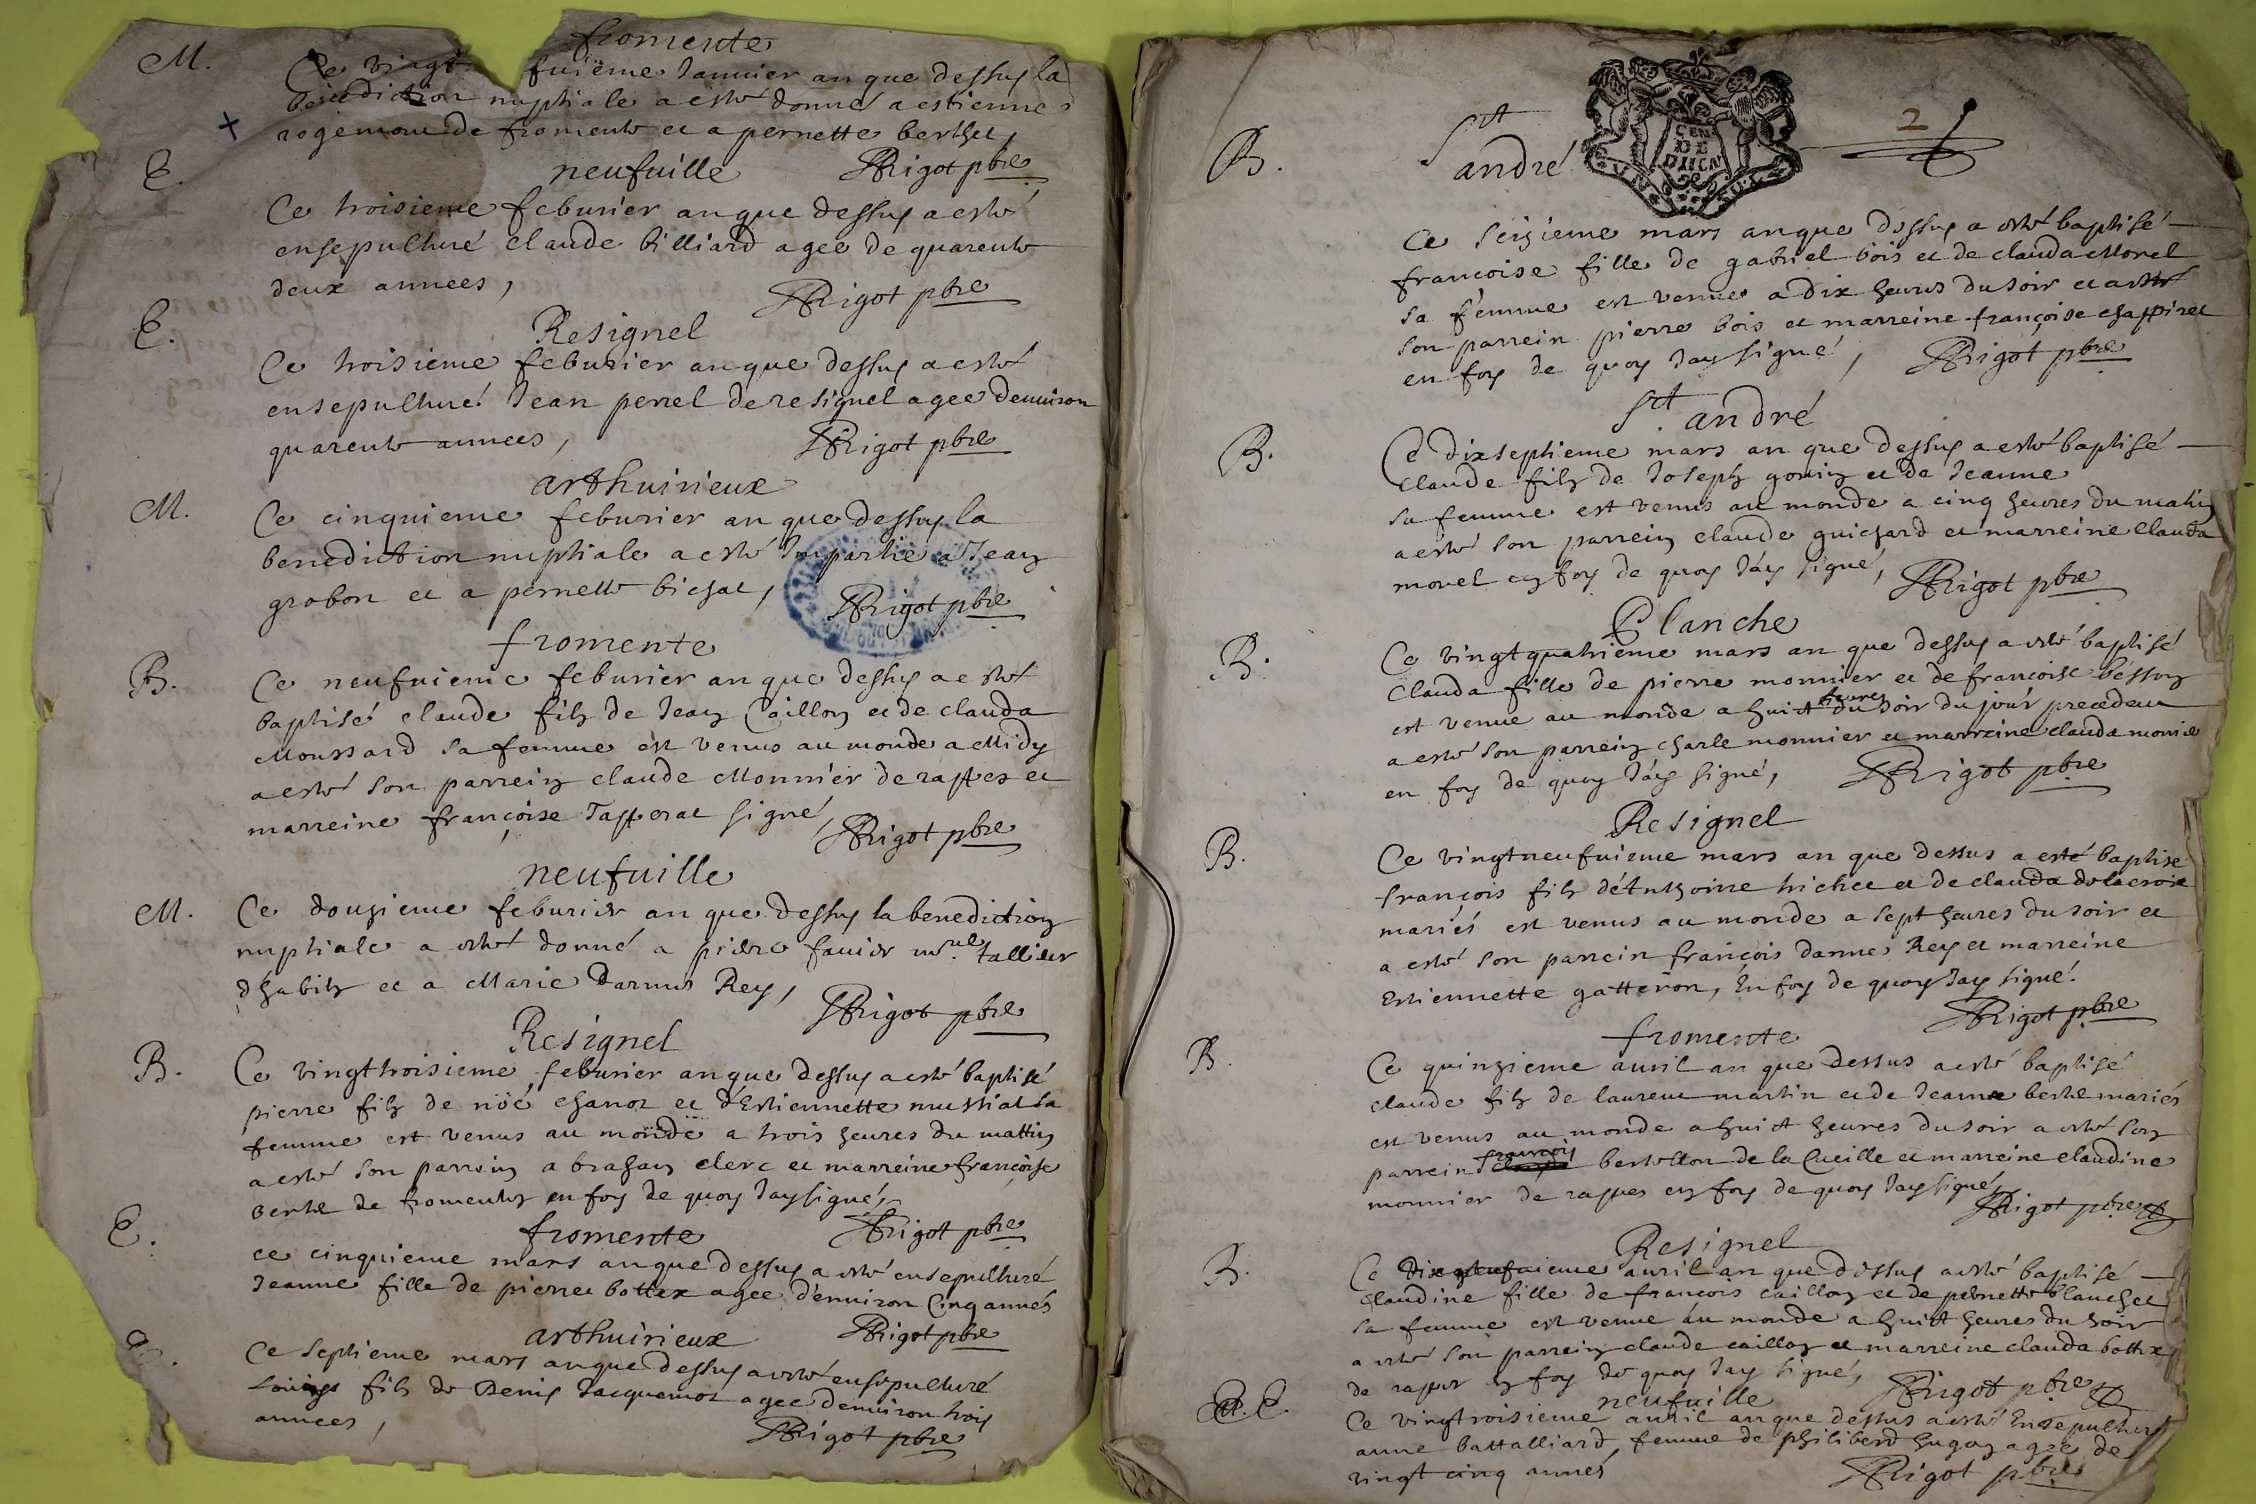 fromente
M. Ce vingt fuiéme Januier an que dessus la
benediction nuptiale a esté donné a estienne
rogemont de froment et a pernette berthet,
neufuille
Rigot pbre
E. Ce troisieme feburier an que dessus a esté
ensepulturé claude billiard agee de quarente
deux annees,
Rigot pbre
Resignel
E. Ce troisieme feburier an que dessus a esté
ensepulturé Jean perrel de resignel agee denuiron
quarente annees,
Rigot pbre
arthuirieux
M. Ce cinquieme feburier an que dessus la
benediction nuptiale a esté Impartie a Jean
grobon et a pernette bichat,
Rigot pbre
fromente
B. Ce neufuieme feburier an que dessus a esté
baptisé claude fils de Jean Caillon et de clauda
Moussard sa femme est venus au monde a Midy
a esté son parrein claude Monnier de rappes et
marreine françoise signé,
Rigot pbre
neufuille
M. Ce douzieme feburier an que dessus la benediction
nuptiale a esté donné a pierre fauier mre tallieur
dhabits et a Marie Darmes Rey,
Rigot pbre
Resignel
B. Ce vingtroisieme feburier an que dessus a esté baptisé
pierre fils de nöé chanoz et d'Estiennette mussiat sa
femme est venus au monde a trois heures du mattin
a esté son parrein abraham clerc et marreine françoise
berte de fromentes en foy de quoy Jay signé,
Rigot pbre
fromente
E. ce cinquieme mars an que dessus a esté ensepulturé
Jeanne fille de pierre bottex agee d'enuiron Cinq annés
Rigot pbre
arthuirieux
E. Ce septieme mars an que dessus a esté ensepulturé
Louys fils de Denis Jacquemoz agee denuiron trois
annees,
Rigot pbre
2
GEN
DE
DUCA
B. St andré
Ce seizieme mars an que dessus a esté baptisé
françoise fille de gabriel bois et de clauda Morel
sa femme est venue a dix heures du soir et a esté
son parrein pierre bois et marreine françoise chappiret
en foy de quoy Jay signé,
Rigot pbre
St andré
B. Ce dixseptieme mars an que dessus a esté baptisé
claude fils de Joseph gonin et de Jeanne
sa femme est venus au monde a cinq heures du matin
a esté son parrein claude guichard et marreine Clauda
morel en foy de quoy Jay signé,
Rigot pbre
Planche
B. Ce vingtquatrieme mars an que dessus a esté baptisé
Clauda fille de pierre monnier et de françoise besson
est venue au monde a huict heures du soir du jour precedent
a esté son parrein charle monnier et marreine clauda monnier
en foy de quoy Jay signé,
Rigot pbre
Resignel
B. Ce vingtneufuieme mars an que dessus a esté baptisé
françois fils d'Anthoine trichet et de clauda delacroix
mariés est venus au monde a sept heures du soir et
a esté son parrein françois darmes Rey et marreine
Estiennette gatteron, En foy de quoy Jay signé.
Rigot pbre
fromente
B. Ce quinzieme auril an que dessus a esté baptisé
claude fils de laurent martin et de Jeanne berte mariés
est venus au monde a huict heures du soir a esté son
parrein françois bertollon de la Cueille et marreine claudine
monnier de rappes en foy de quoy Jay signé,
Rigot pbre
Resignel
B. Ce dixneufuieme auril an que dessus a esté baptisé
Claudine fille de françois caillon et de pernette blanchet
sa femme est venue au monde a huict heures du soir
a esté son parrein claude caillon et marreine clauda bottex
de rappes en foy de quoy Jay signé,
Rigot pbre
neufuille
E. Ce vingtroisieme auril an que dessus a esté Ensepulturé
anne battalliard, femme de philiberd hugon agee de
vingt cinq annés
Rigot pbre